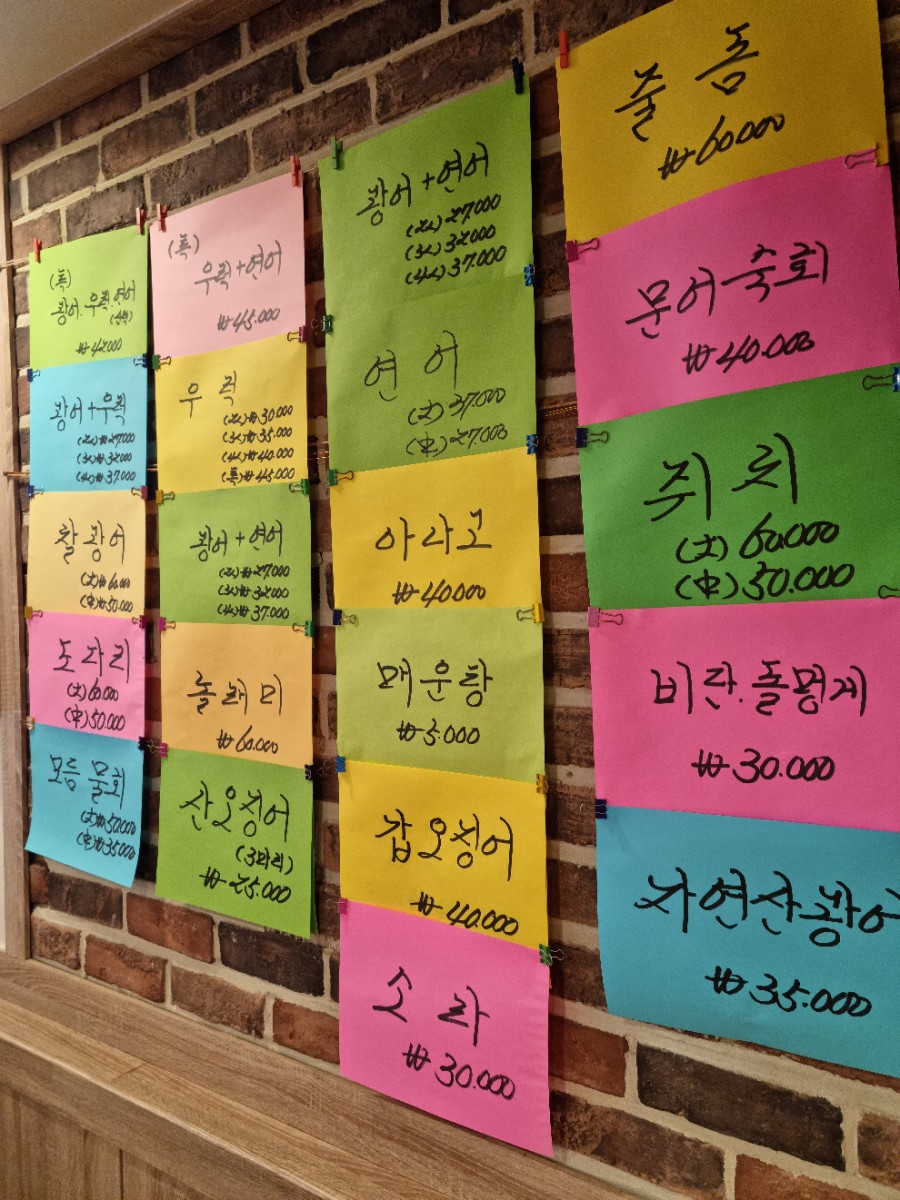 (특)
광어.우럭.연어
(삼색)
₩42.000
광어+우럭
(2人)₩27,000
(3人)₩32.000
(4人)₩37.000
찰광어
(大)₩60.000
(中)₩50.000
도다리
(大)60.000
(中)50.000
모듬물회
(大)₩50.000
(中)₩35.000
(특)
우럭+연어
₩45.000
우럭
(2人)₩30.000
(3人)₩35.000
(4人)₩40.000
(특)₩45.000
광어+연어
(2人)₩27.000
(3人)₩32.000
(4人)₩37.000
놀래미
₩60.000
산오징어
(3마리)
₩25.000
광어+연어
(2人)27.000
(3人)32.000
(4人)37.000
연어
(大)37.000
(中)27.000
아라고
₩40.000
매운탕
₩5.000
갑오징어
₩40.000
소라
₩30.000
줄돔
₩60.000
문어숙회
₩40.000
쥐치
(大)60.000
(中)50.000
비단.돌멍게
₩30.000
자연산광어
₩35.000